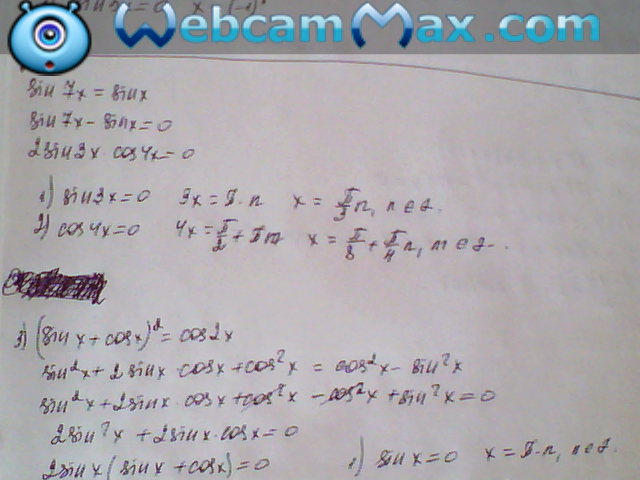 WebcamMax.com
sin 7x = sin x
sin 7x - sin x = 0
2 sin 3x · cos 4x = 0
1) sin 3x = 0 3x = π · n x = π/3 n, n ∈ z.
2) cos 4x = 0 4x = π/2 + πn x = π/8 + π/4 n, n ∈ z.
3) (sin x + cos x)² = cos 2x
sin² x + 2 sin x · cos x + cos² x = cos² x - sin² x
sin² x + 2 sin x · cos x + cos² x - cos² x + sin² x = 0
2 sin² x + 2 sin x · cos x = 0
2 sin x (sin x + cos x) = 0 1) sin x = 0 x = π · n, n ∈ z.